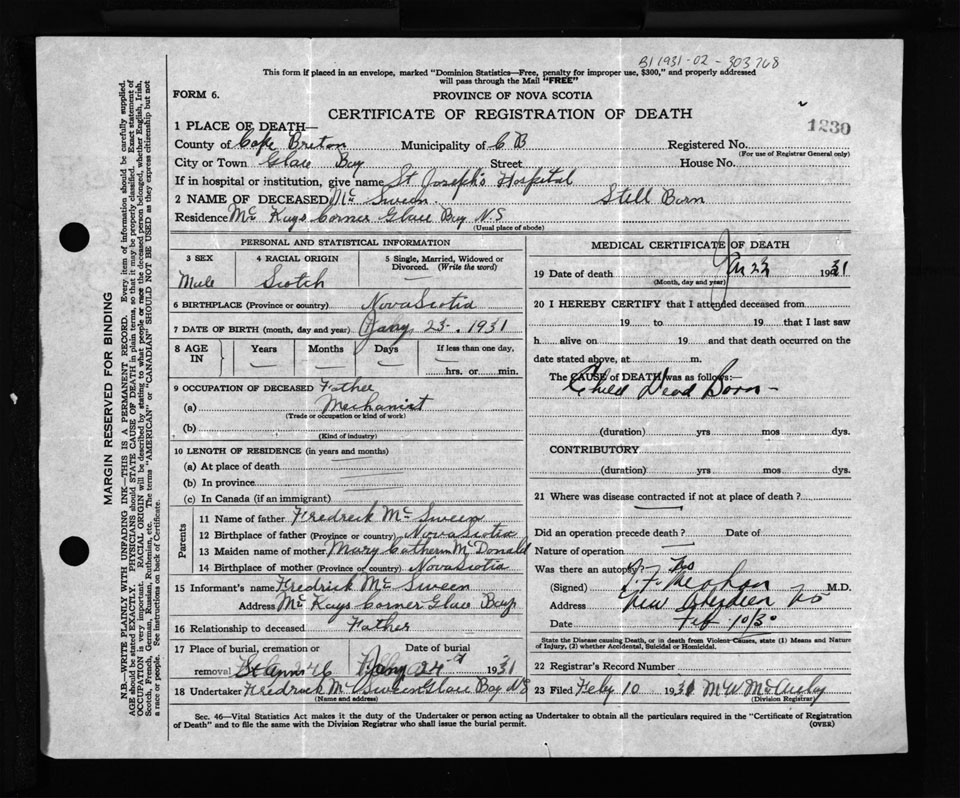 B1 1931-02-303768
This form if placed in an envelope, marked "Dominion Statistics—Free, penalty for improper use, $300," and properly addressed
will pass through the Mail "FREE"
FORM 6.
PROVINCE OF NOVA SCOTIA
CERTIFICATE OF REGISTRATION OF DEATH
1230
1 PLACE OF DEATH—
County of Cape Breton Municipality of C B Registered No.
(For use of Registrar General only)
City or Town Glace Bay Street House No.
If in hospital or institution, give name St Joseph's Hospital
2 NAME OF DECEASED Mc Sween Still Born
Residence Mc Kays Corner Glace Bay N.S
(Usual place of abode)
PERSONAL AND STATISTICAL INFORMATION
3 SEX
4 RACIAL ORIGIN
5 Single, Married, Widowed or Divorced. (Write the word)
Male Scotch
6 BIRTHPLACE (Province or country) Nova Scotia
7 DATE OF BIRTH (month, day and year) Jany 23. 1931
8 AGE IN Years Months Days If less than one day,
hrs. or min.
9 OCCUPATION OF DECEASED Father
(a) Mechanist
(Trade or occupation or kind of work)
(b)
(Kind of industry)
10 LENGTH OF RESIDENCE (in years and months)
(a) At place of death
(b) In province
(c) In Canada (if an immigrant)
Parents
11 Name of father Fredreck Mc Sween
12 Birthplace of father (Province or country) Nova Scotia
13 Maiden name of mother Mary Catherin McDonald
14 Birthplace of mother (Province or country) Nova Scotia
15 Informant's name Fredrick Mc Sween
Address Mc Kays Corner Glace Bay
16 Relationship to deceased Father
17 Place of burial, cremation or removal Date of burial
24 1931
18 Undertaker Fredrick Mc Sween Glace Bay N S
(Name and address)
MEDICAL CERTIFICATE OF DEATH
19 Date of death Jan 23 1931
(Month, day and year)
20 I HEREBY CERTIFY that I attended deceased from
19 to 19 that I last saw
h alive on 19 and that death occurred on the
date stated above, at m.
The CAUSE of DEATH was as follows:—
Child Dead Born—
(duration) yrs mos dys.
CONTRIBUTORY
(duration) yrs mos dys.
21 Where was disease contracted if not at place of death?
Did an operation precede death? Date of
Nature of operation
Was there an autopsy? No
(Signed) M.D.
Address New Aberdeen NS
Date Feb 10/30
State the Disease causing Death, or in death from Violent Causes, state (1) Means and Nature of Injury, (2) whether Accidental, Suicidal or Homicidal.
22 Registrar's Record Number
23 Filed Feby 10 1931 M.W.
(Division Registrar)
Sec. 46—Vital Statistics Act makes it the duty of the Undertaker or person acting as Undertaker to obtain all the particulars required in the "Certificate of Registration
of Death" and to file the same with the Division Registrar who shall issue the burial permit.
(OVER)
MARGIN RESERVED FOR BINDING
N.B.—WRITE PLAINLY WITH UNFADING INK—THIS IS A PERMANENT RECORD. Every item of information should be carefully supplied.
AGE should be stated EXACTLY. PHYSICIANS should STATE CAUSE OF DEATH in plain terms, so that it may be properly classified. Exact statement of
OCCUPATION is very important. RACIAL ORIGIN will be described by stating to what people or race the deceased person belonged, whether English, Irish,
Scotch, French, German, Russian, Ruthenian, etc. The terms "AMERICAN" or "CANADIAN" SHOULD NOT BE USED as they express citizenship but not
a race or people. See instructions on back of Certificate.